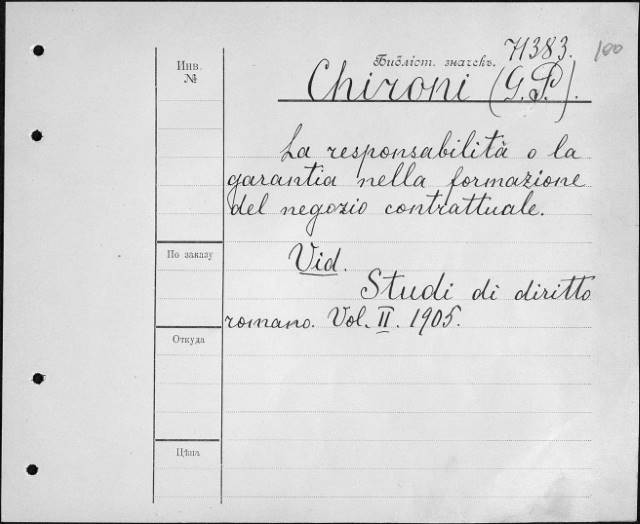 71383. 100
Инв. №
Библіст. значекъ.
Chironi (G. P.).
La responsabilità o la
garantia nella formazione
del negozio contrattuale.
По заказу
Vid.
Studi di diritto
romano. Vol. II. 1905.
Откуда
Цѣна